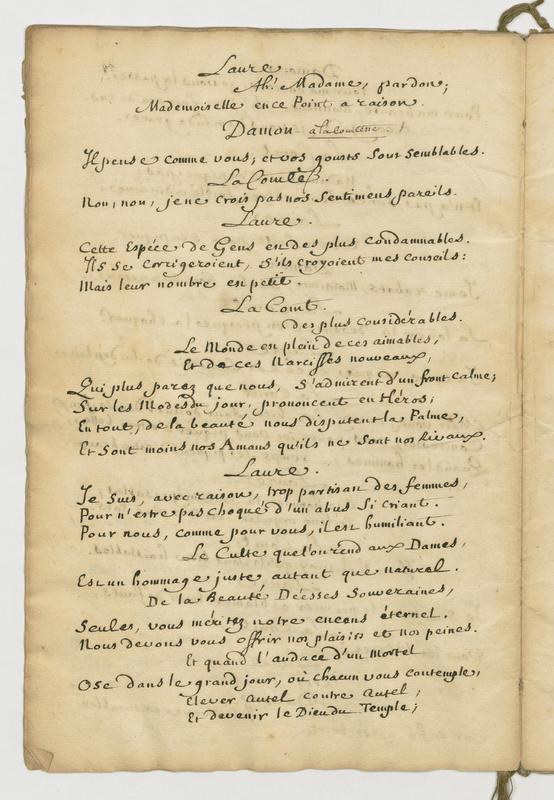 Laure.
Ah! Madame, pardon;
Mademoiselle ence Point a raison.
Damon à la Comtesse.
Il pense comme vous, et vos gousts sont semblables.
La Comtesse.
Non, non, jene crois pas nos sentimens pareils.
Laure.
Cette Espéce de Gens en des plus condamnables.
Ils se corrigeroient, s'ils croyoient mes conseils:
Mais leur nombre en petit.
La Comt.
des plus considérables.
Le Monde en plein de ces aimables,
Et de ces Narcisses nouveaux,
Qui plus parez que nous, s'admirent d'un front calme;
Sur les Modes du jour, prononcent en Héros;
En tout, de la beauté nous disputent la Palme,
Et sont moins nos Amans qu'ils ne sont nos Rivaux.
Laure.
Je suis, avec raison, trop partisan des femmes,
Pour n'estre pas choqué d'un abus si criant.
Pour nous, comme pour vous, il est humiliant.
Le Culte quel'on rend aux Dames,
Est un hommage juste autant que naturel.
De la Beauté Déesses Souveraines,
Seules, vous méritez notre encens éternel.
Nous devons vous offrir nos plaisirs et nos peines.
Et quand l'audace d'un Mortel
Ose dans le grand jour, où chacun vous contemple,
Elever autel contre autel,
Et devenir le Dieu du Temple;